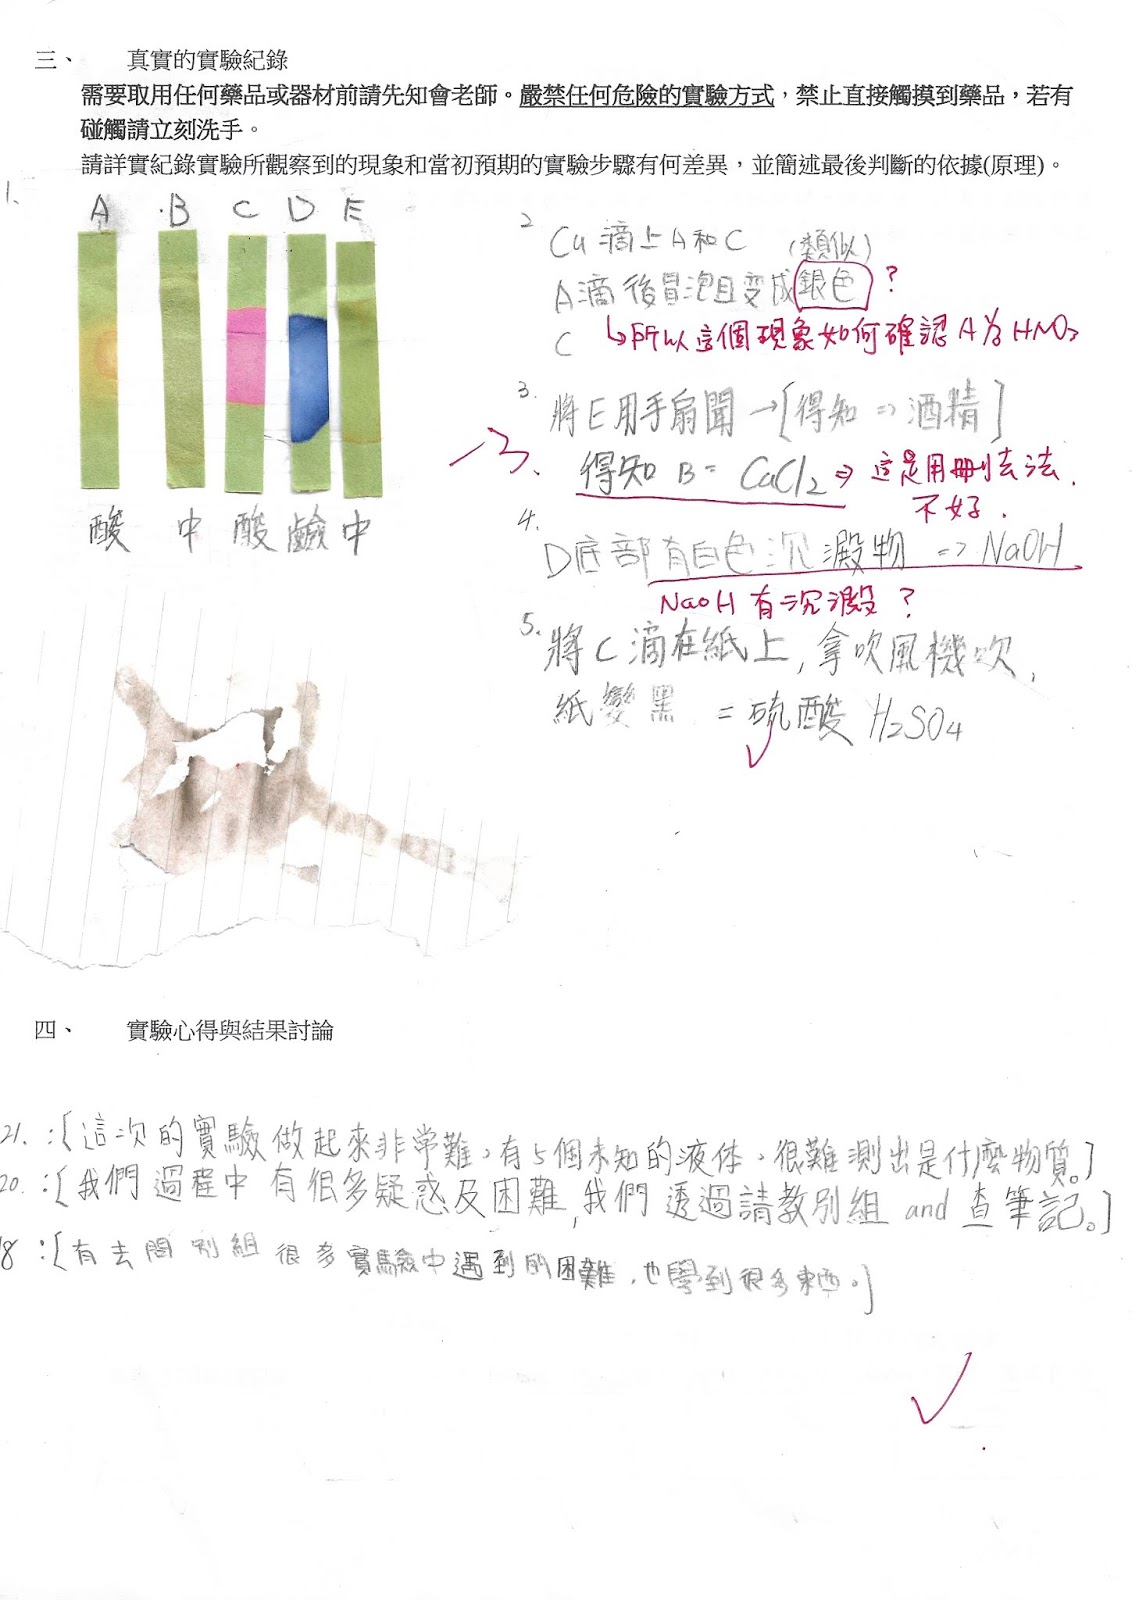 三、 真實的實驗紀錄
需要取用任何藥品或器材前請先知會老師。嚴禁任何危險的實驗方式，禁止直接觸摸到藥品，若有
碰觸請立刻洗手。
請詳實紀錄實驗所觀察到的現象和當初預期的實驗步驟有何差異，並簡述最後判斷的依據(原理)。
1.
A B C D E
酸 中 酸 鹼 中
2 Cu 滴上 A 和 C (類似)
A滴後冒泡且变成銀色 ?
C ↳所以這個現象如何確認 A為 HNO3
3. 將E用手扇聞→[得知⇒酒精]
得知 B = CaCl2 ⇒ 這是用刪去法.
不好.
4. D底部有白色沉澱物 => NaOH
NaOH 有沉澱?
5. 將C滴在紙上,拿吹風機吹,
紙變黑 = 硫酸 H2SO4
四、 實驗心得與結果討論
21. :[這次的實驗做起來非常難,有5個未知的液体,很難測出是什麼物質。]
20. :[我們過程中有很多疑惑及困難,我們透過請教別組 and 查筆記。]
18 :[有去問別組很多實驗中遇到的困難,也學到很多東西。]